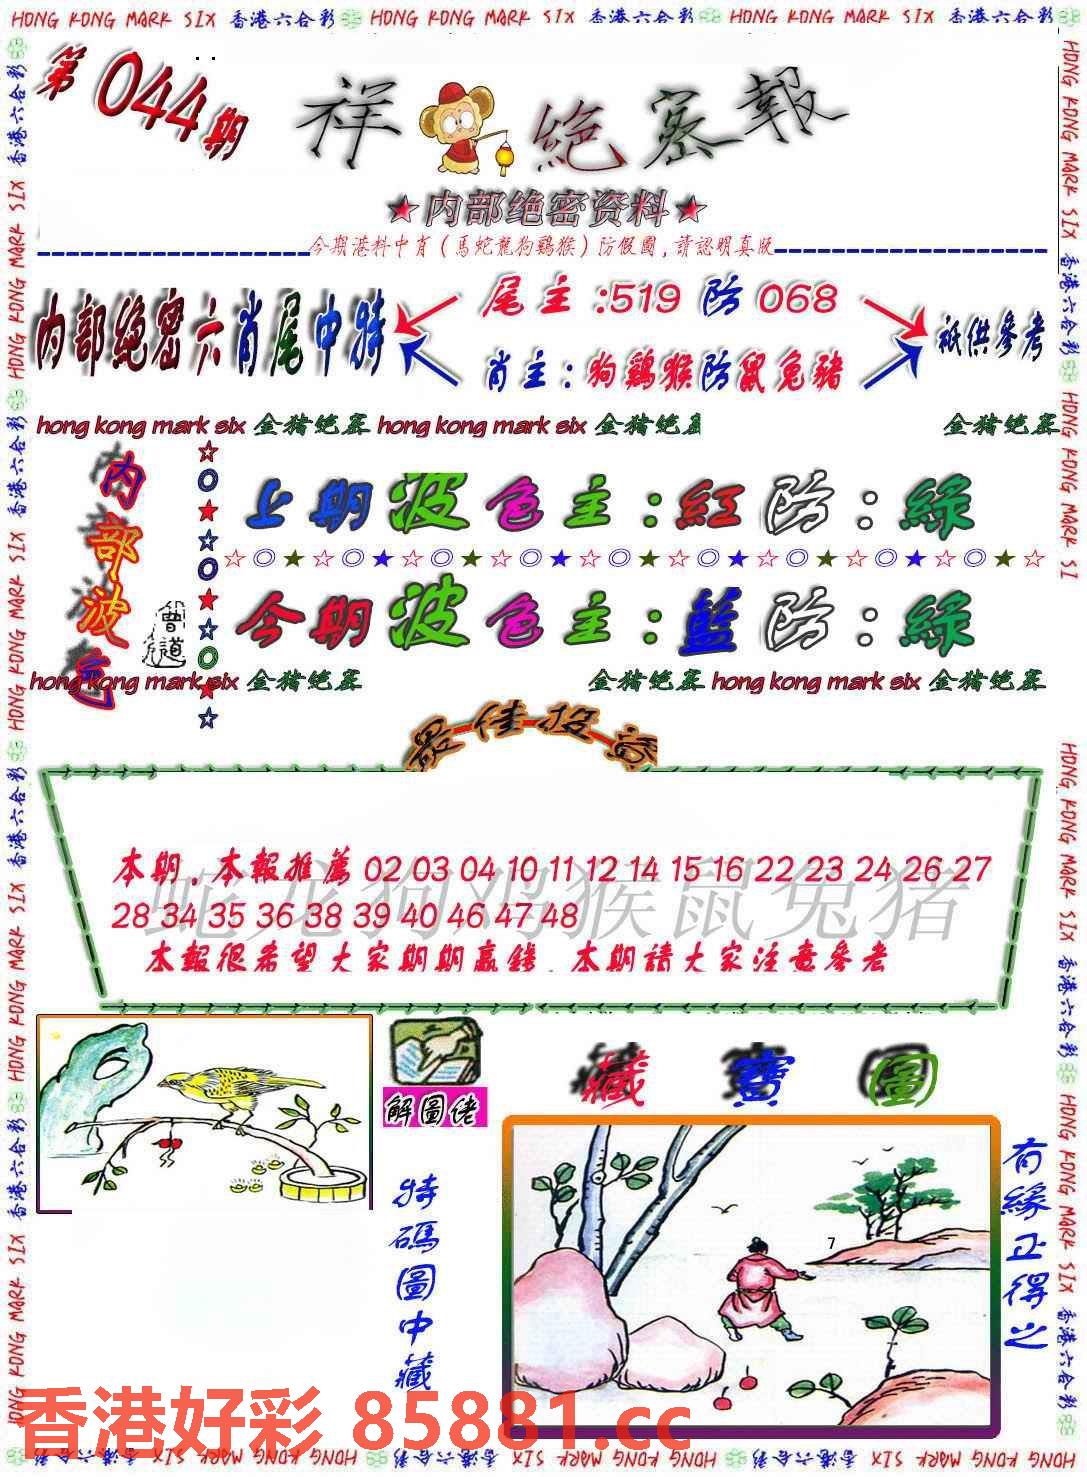 HONG KONG MARK SIX 香港六合彩 HONG KONG MARK SIX 香港六合彩 HONG KONG MARK SIX 香港六合彩
第044期
祥 絕密報
★内部绝密资料★
今期港料中肖(馬蛇龍狗鷄猴)防假圖,請認明真版
内部絕密六肖尾中特
尾主:519防068
肖主:狗鷄猴防鼠兔豬
祗供參考
hong kong mark six 金猪绝密 hong kong mark six 金猪绝密
金猪绝密
内部波色
曾道
上期波色主:紅防:綠
☆◎★☆◎★☆◎★☆◎★☆◎★☆◎★☆◎★☆◎★☆◎★☆
今期波色主:藍防:綠
hong kong mark six 金猪绝密
金猪绝密 hong kong mark six 金猪绝密
最佳投
蛇龙狗鸡猴鼠兔猪
本期,本報推薦 02 03 04 10 11 12 14 15 16 22 23 24 26 27
28 34 35 36 38 39 40 46 47 48
本報很希望大家期期贏錢,本期請大家注意參考
解圖佬
特碼圖中藏
藏寶圖
7
有緣正得之
香港好彩 85881.cc